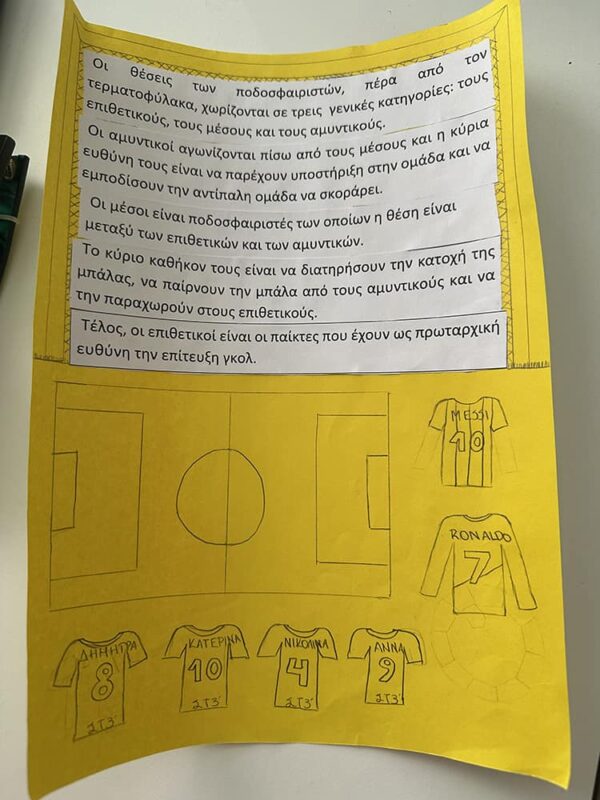 Οι θέσεις των ποδοσφαιριστών, πέρα από τον
τερματοφύλακα, χωρίζονται σε τρεις γενικές κατηγορίες: τους
επιθετικούς, τους μέσους και τους αμυντικούς.
Οι αμυντικοί αγωνίζονται πίσω από τους μέσους και η κύρια
ευθύνη τους είναι να παρέχουν υποστήριξη στην ομάδα και να
εμποδίσουν την αντίπαλη ομάδα να σκοράρει.
Οι μέσοι είναι ποδοσφαιριστές των οποίων η θέση είναι
μεταξύ των επιθετικών και των αμυντικών.
Το κύριο καθήκον τους είναι να διατηρήσουν την κατοχή της
μπάλας, να παίρνουν την μπάλα από τους αμυντικούς και να
την παραχωρούν στους επιθετικούς.
Τέλος, οι επιθετικοί είναι οι παίκτες που έχουν ως πρωταρχική
ευθύνη την επίτευξη γκολ.
MESSI
10
RONALDO
7
ΔΗΜΗΤΡΑ
8
ΣΤ3΄
ΚΑΤΕΡΙΝΑ
10
ΣΤ3΄
ΝΙΚΟΛΙΝΑ
4
ΣΤ3΄
ΑΝΝΑ
9
ΣΤ3΄